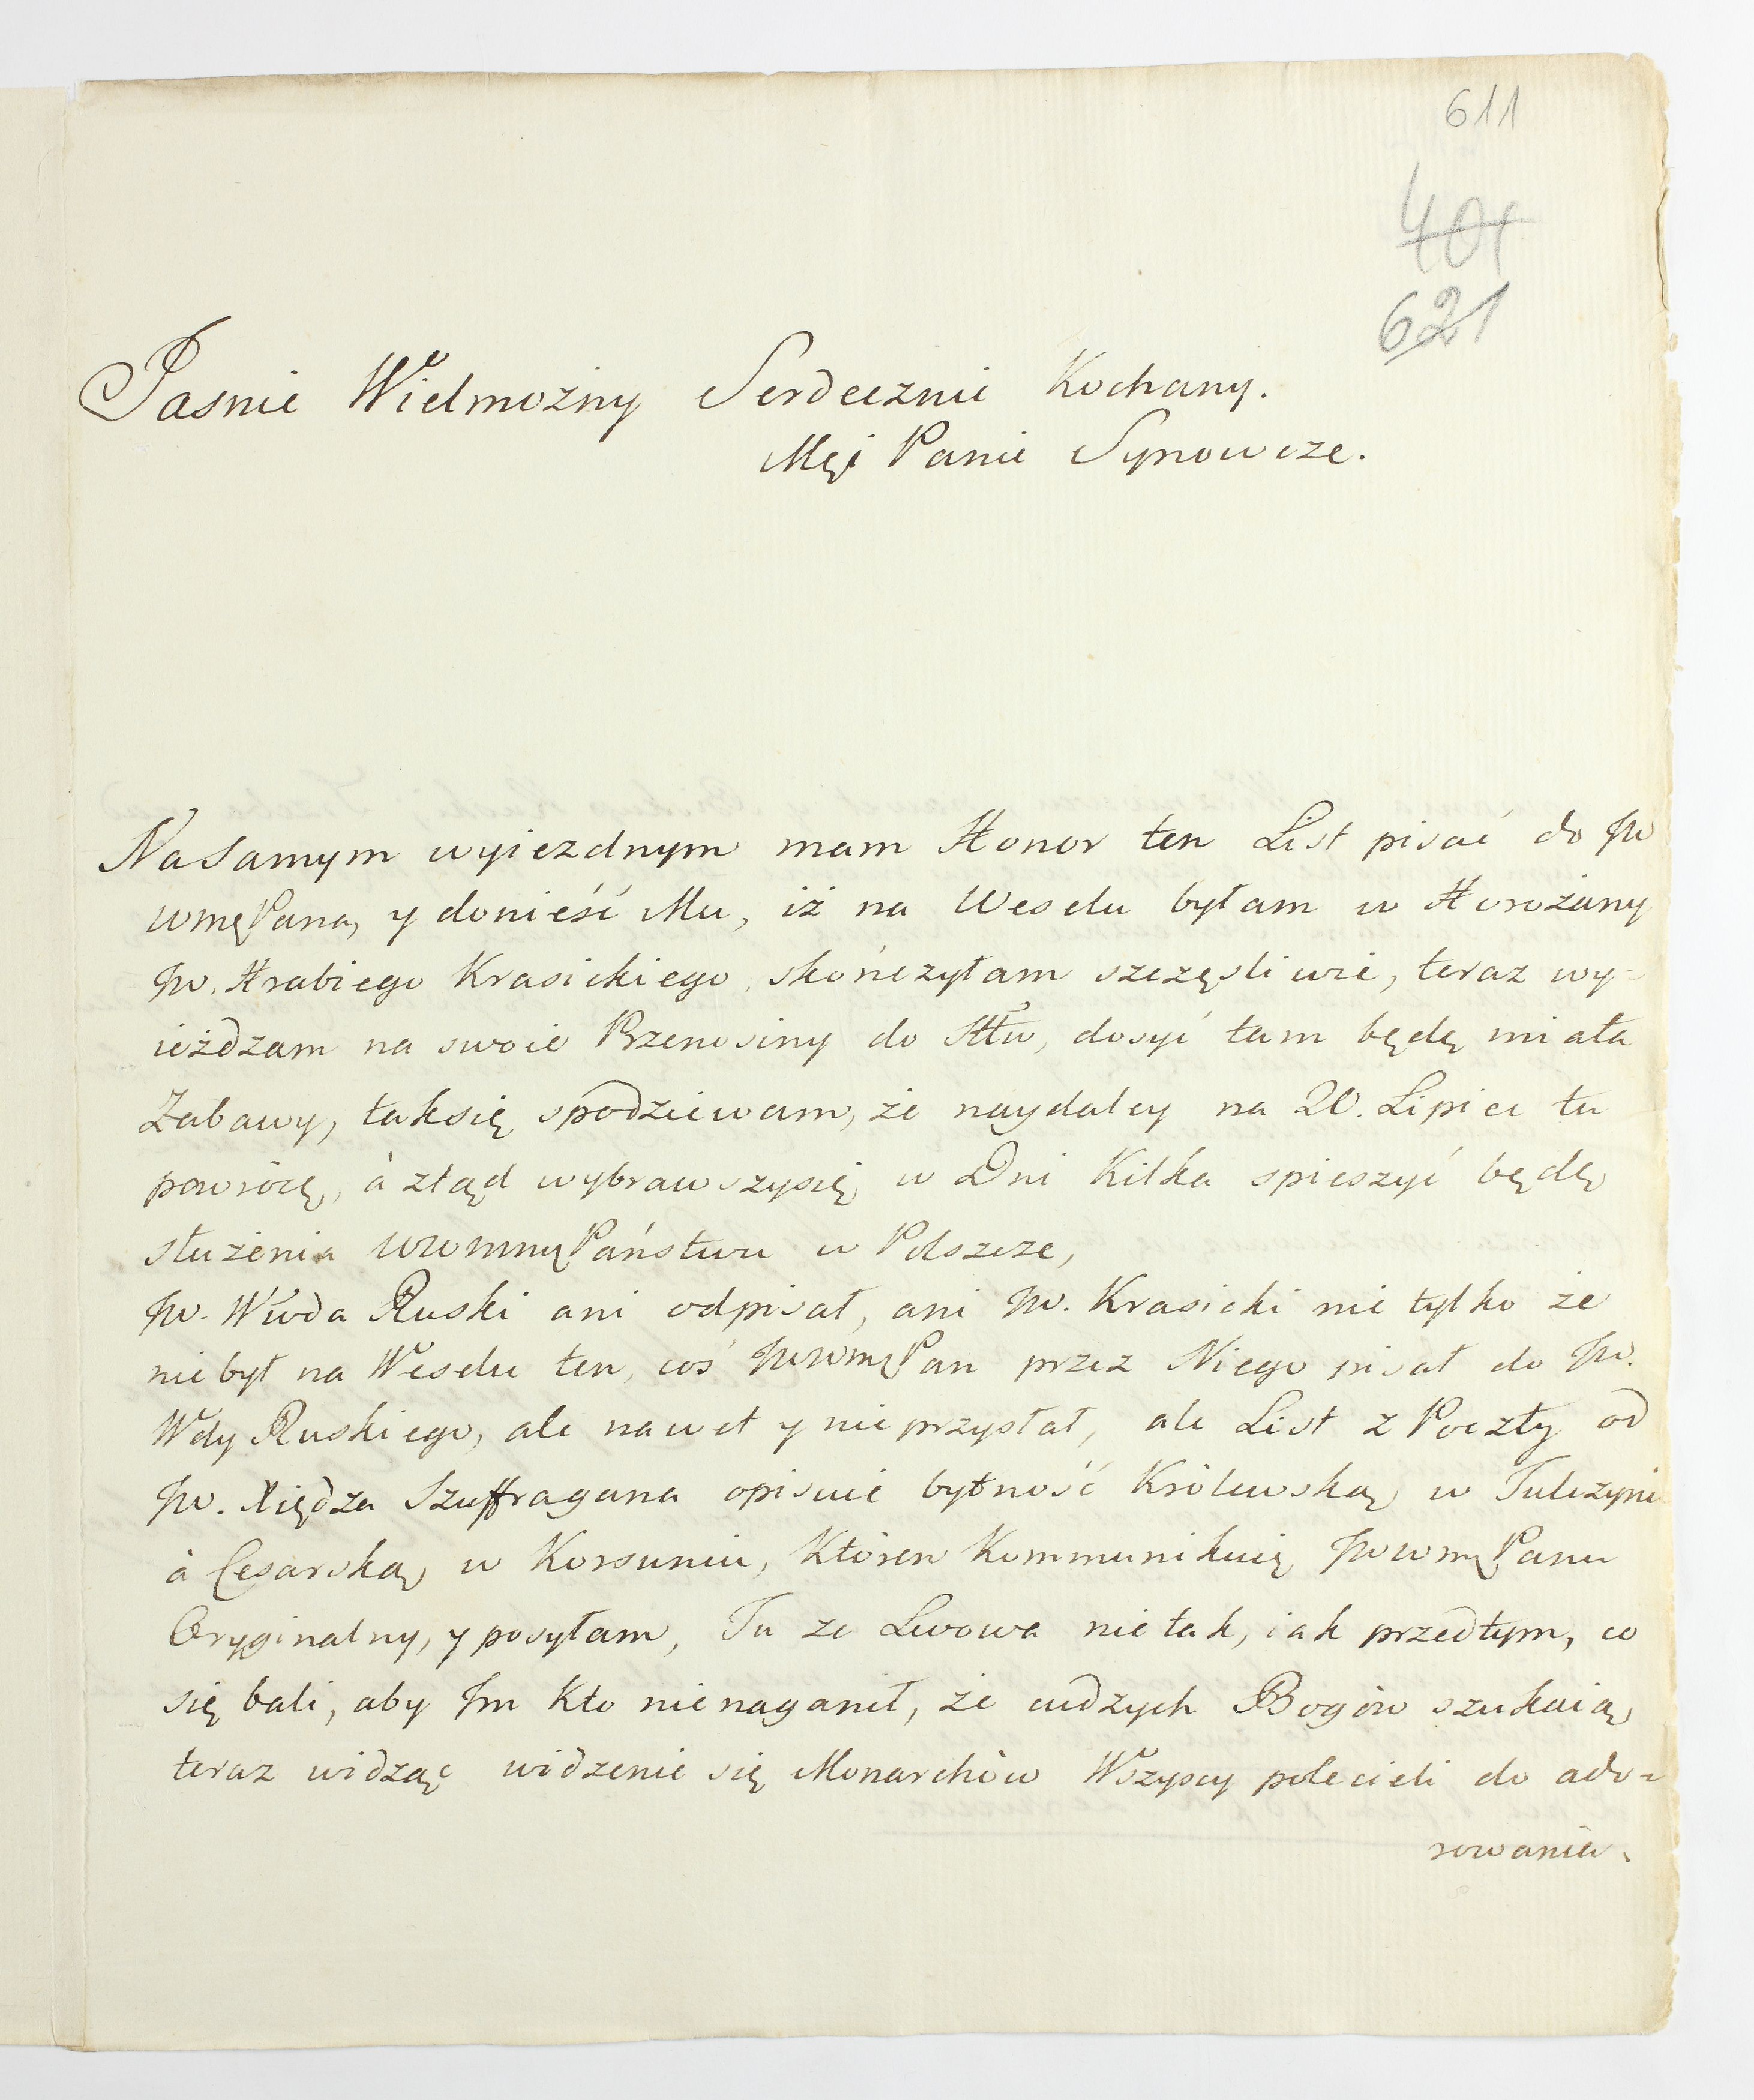 611
401
621
Jasnie Wielmożny Serdecznie Kochany.
Mςi Panie Synowcze.
Na samym wyiezdnym mam Honor ten List pisać do JW
WmęPana, y donieść Mu, iż na Weselu byłam w Horożany
JW. Hrabiego Krasickiego, skończyłam szczęsliwie, teraz wy-
ieżdzam na swoie Przenosiny do dosyć tam będę miała
Zabawy, tak się spodziewam, że naydaley na 20. Lipiec tu
powrócę, à ztąd wybrawszysię w Dni Kilka spieszyć będę
służenia Państwu w Polszcze,
JW. Wwda Ruski ani odpisał, ani JW. Krasicki nie tylko że
nie był na Weselu ten, coś JWWmęPan przez Niego pisał do JW.
Wdy Ruskiego, ale nawet y nie przysłał, ale List z Poczty od
JW. Xiędza Szuffragana opisuie bytność Królewską w Tulczynie
à Cesarską w Korsuniu, Któren Kommunikuię JWWmęPanu
Oryginalny, y posyłam, Tu ze Lwowa nie tak, iak przedtym, co
się bali, aby Im Kto nie naganił, że cudzych Bogów szukaią
teraz widząc widzenie się Monarchów Wszyscy polecieli do ado-
rowania.